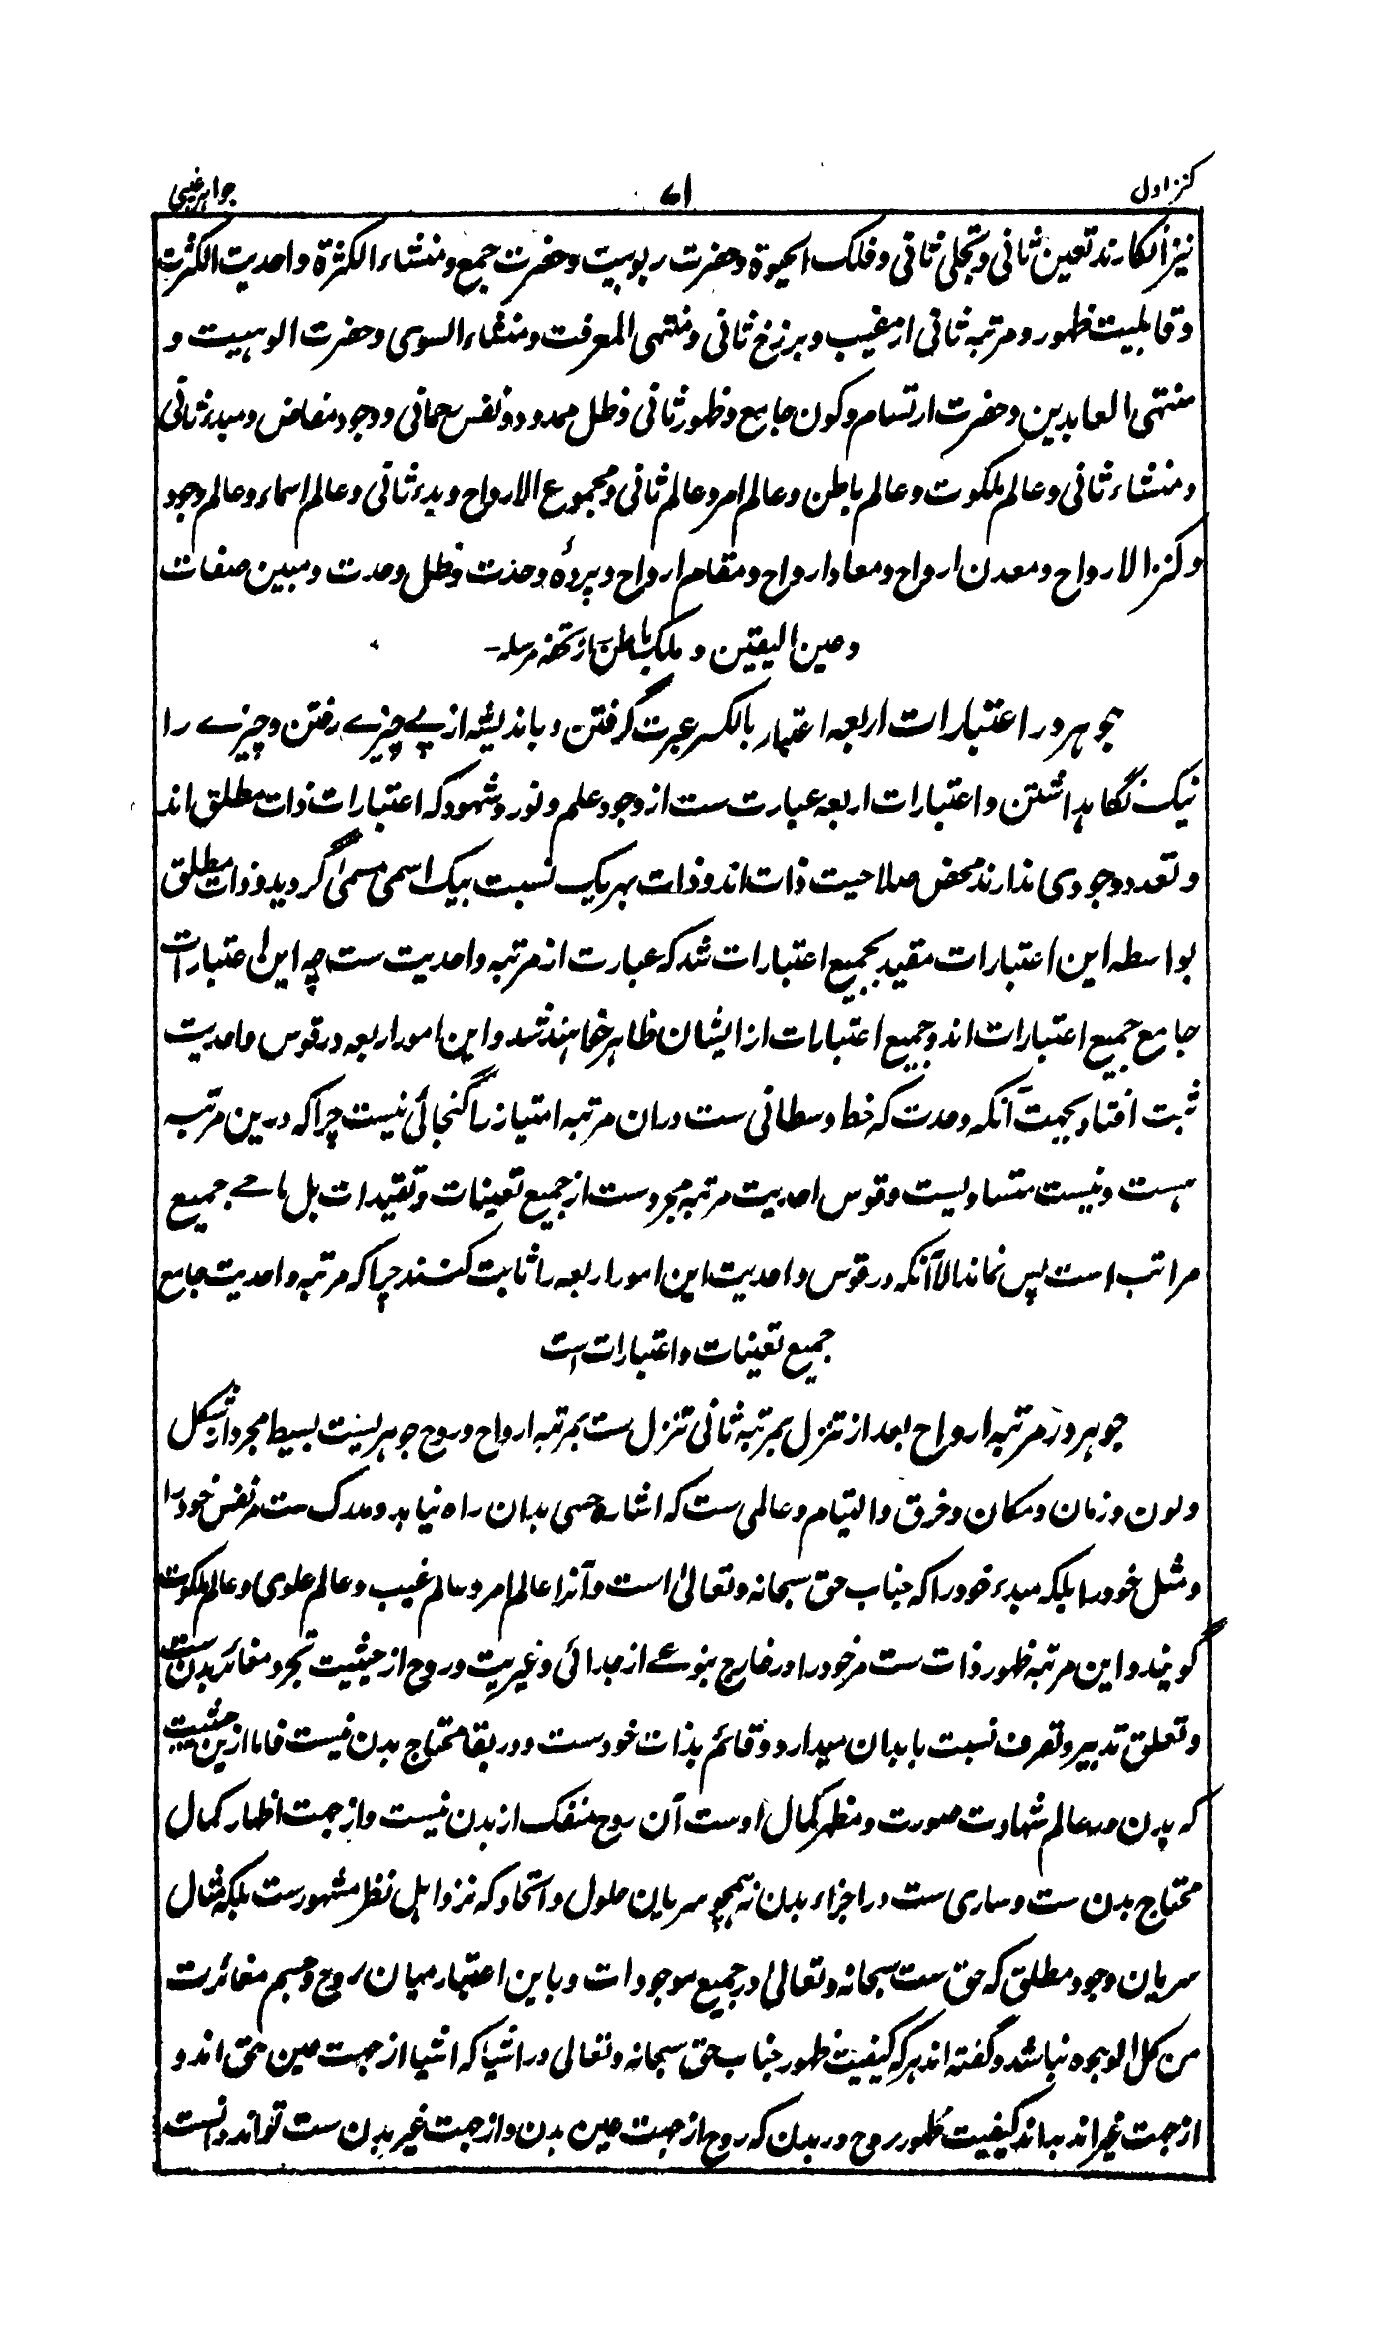 کنز اول ۷۱ جواہر غیبی
نیز انکارند تعین ثانی و تجلی ثانی و فلک الحیوة و حضرت ربوبیت و حضرت جمع و منشاء الکثرة و احدیت الکثرت
و قابلیت ظهور و مرتبه ثانی از غیب و برزخ ثانی و منتهی المعرفت و منشاء السوی و حضرت الوهیت و
منتهی العابدین و حضرت ارتسام و کون جامع و ظهور ثانی و ظل ممدود و نفس رحمانی و وجود مفاض و مبدء ثانی
و منشاء ثانی و عالم ملکوت و عالم باطن و عالم امر و عالم ثانی و مجموع الارواح و بدء ثانی و عالم اسماء و عالم وجود
و کنز الارواح و معدن ارواح و معاد ارواح و مقام ارواح و پردهٔ وحدت و ظل وحدت و مبین صفات
و عین الیقین و ملک باطن از تحفه مرسله۔
جوهر در اعتبارات اربعه اعتبار بالکسر عبرت گرفتن و باندیشه از پے چیزے رفتن و چیزے را
نیک نگاهداشتن و اعتبارات اربعه عبارت ست از وجود علم و نور و شهود که اعتبارات ذات مطلق اند
و تعدد وجودی ندارند محض صلاحیت ذات اند و ذات بهریک نسبت بیک اسمی مسمیٰ گردید و ذات مطلق
بواسطه این اعتبارات مقید بجمیع اعتبارات شد که عبارت از مرتبه واحدیت ست چه این اعتبارات
جامع جمیع اعتبارات اند و جمیع اعتبارات از ایشان ظاهر خواهند شد و این امور اربعه در قوس واحدیت
ثبت افتاد بجهت آنکه وحدت که خط وسطانی ست در ان مرتبه امتیاز را گنجائی نیست چرا که درین مرتبه
هست و نیست متساویست و قوس احدیت مرتبه مجرد ست از جمیع تعینات و تقیدات بل ماحے جمیع
مراتب است پس نماند الا آنکه در قوس واحدیت این امور اربعه را ثابت کنند چرا که مرتبه واحدیت جامع
جمیع تعینات و اعتبارات است
جوهر در مرتبه ارواح بعد از تنزل بمرتبه ثانی تنزل ست بمرتبه ارواح و روح جوهریست بسیط مجرد از شکل
و لون و زمان و مکان و خرق و التیام و عالمی ست که اشاره حسی بدان راه نیابد و مدرک ست مر نفس خود را
و مثل خود را بلکه مبدء خود را که جناب حق سبحانه و تعالیٰ است و آنرا عالم امر و عالم غیب و عالم علوی و عالم ملکوت
گویند و این مرتبه ظهور ذات ست مر خود را در خارج بنوعے از جدائی و غیریت و روح از حیثیت تجرد مغائر بدن ست
و تعلق تدبیر و تصرف نسبت با بدان میدارد و قائم بذات خودست و در بقا محتاج بدن نیست فاما ازین حیثیت
که بدن در عالم شهادت صورت و مظهر کمال اوست آن روح منفک از بدن نیست و از جهت اظهار کمال
محتاج بدن ست و ساری ست در اجزاء بدن نه همچو سریان حلول و اتحاد که نزد اهل نظر مشهورست بلکه مثال
سریان وجود مطلق که حق ست سبحانه و تعالیٰ در جمیع موجودات و باین اعتبار میان روح و جسم مغائرت
من کل الوجوه نباشد و گفته اند هر که کیفیت ظهور جناب حق سبحانه و تعالی در اشیا که اشیا از جهت عین حق اند و
از جهت غیر اند بداند کیفیت ظهور روح در بدن که روح از جهت عین بدن و از جهت غیر بدن ست تواند دانست